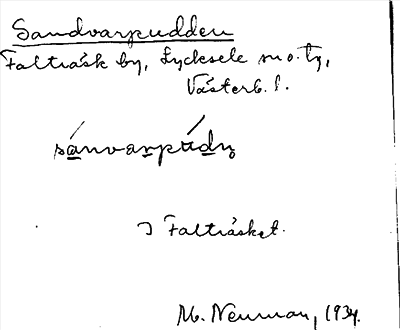 Sandvarpudden
Falträsk by, Lycksele sn o. tg,
Västerb. l.
sánvarpúdn̥
I Falträsket.
M. Neuman, 1934.